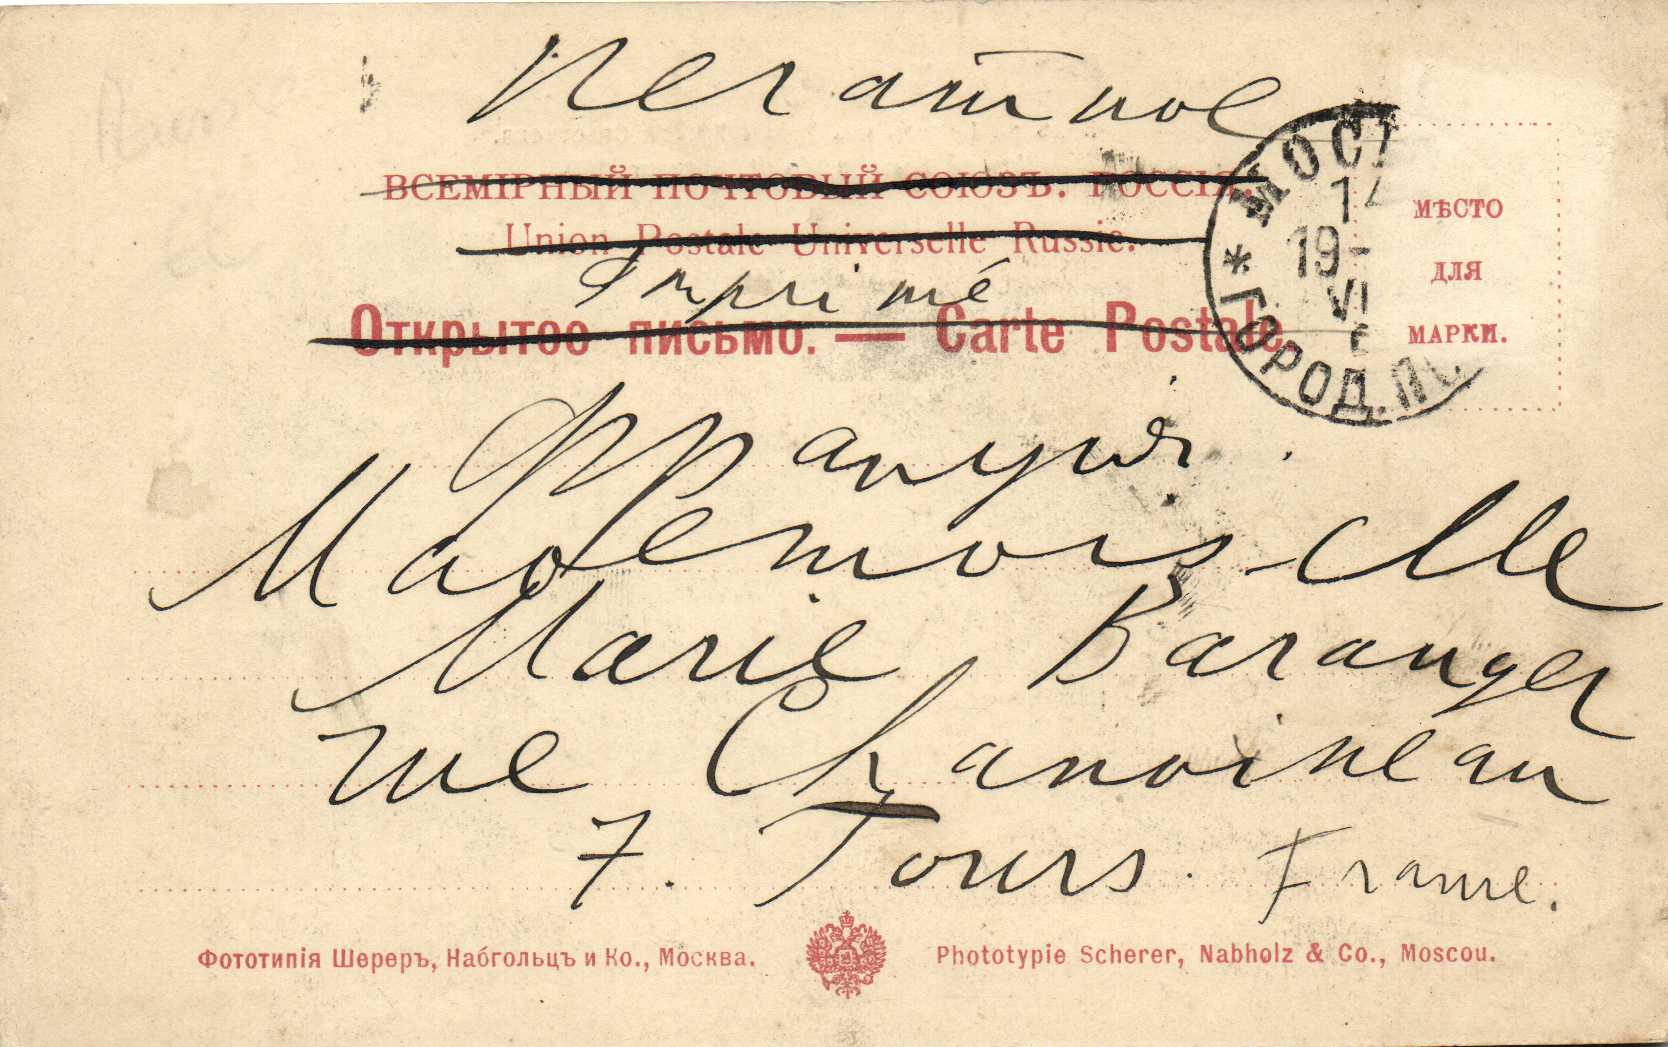 Печатное
ВСЕМІРНЫЙ ПОЧТОВЫЙ СОЮЗЪ. РОССІЯ.
Union Postale Universelle Russie.
Imprimé
Открытое письмо. — Carte Postale.
МОС
14
19-
VI
* ГОРОД. ПО
МѢСТО
ДЛЯ
МАРКИ.
Франція.
Mademoiselle
Marie Baranger
rue Chanoineau
7. Tours. France.
Фототипія Шереръ, Набгольцъ и Ко., Москва.
Phototypie Scherer, Nabholz & Co., Moscou.